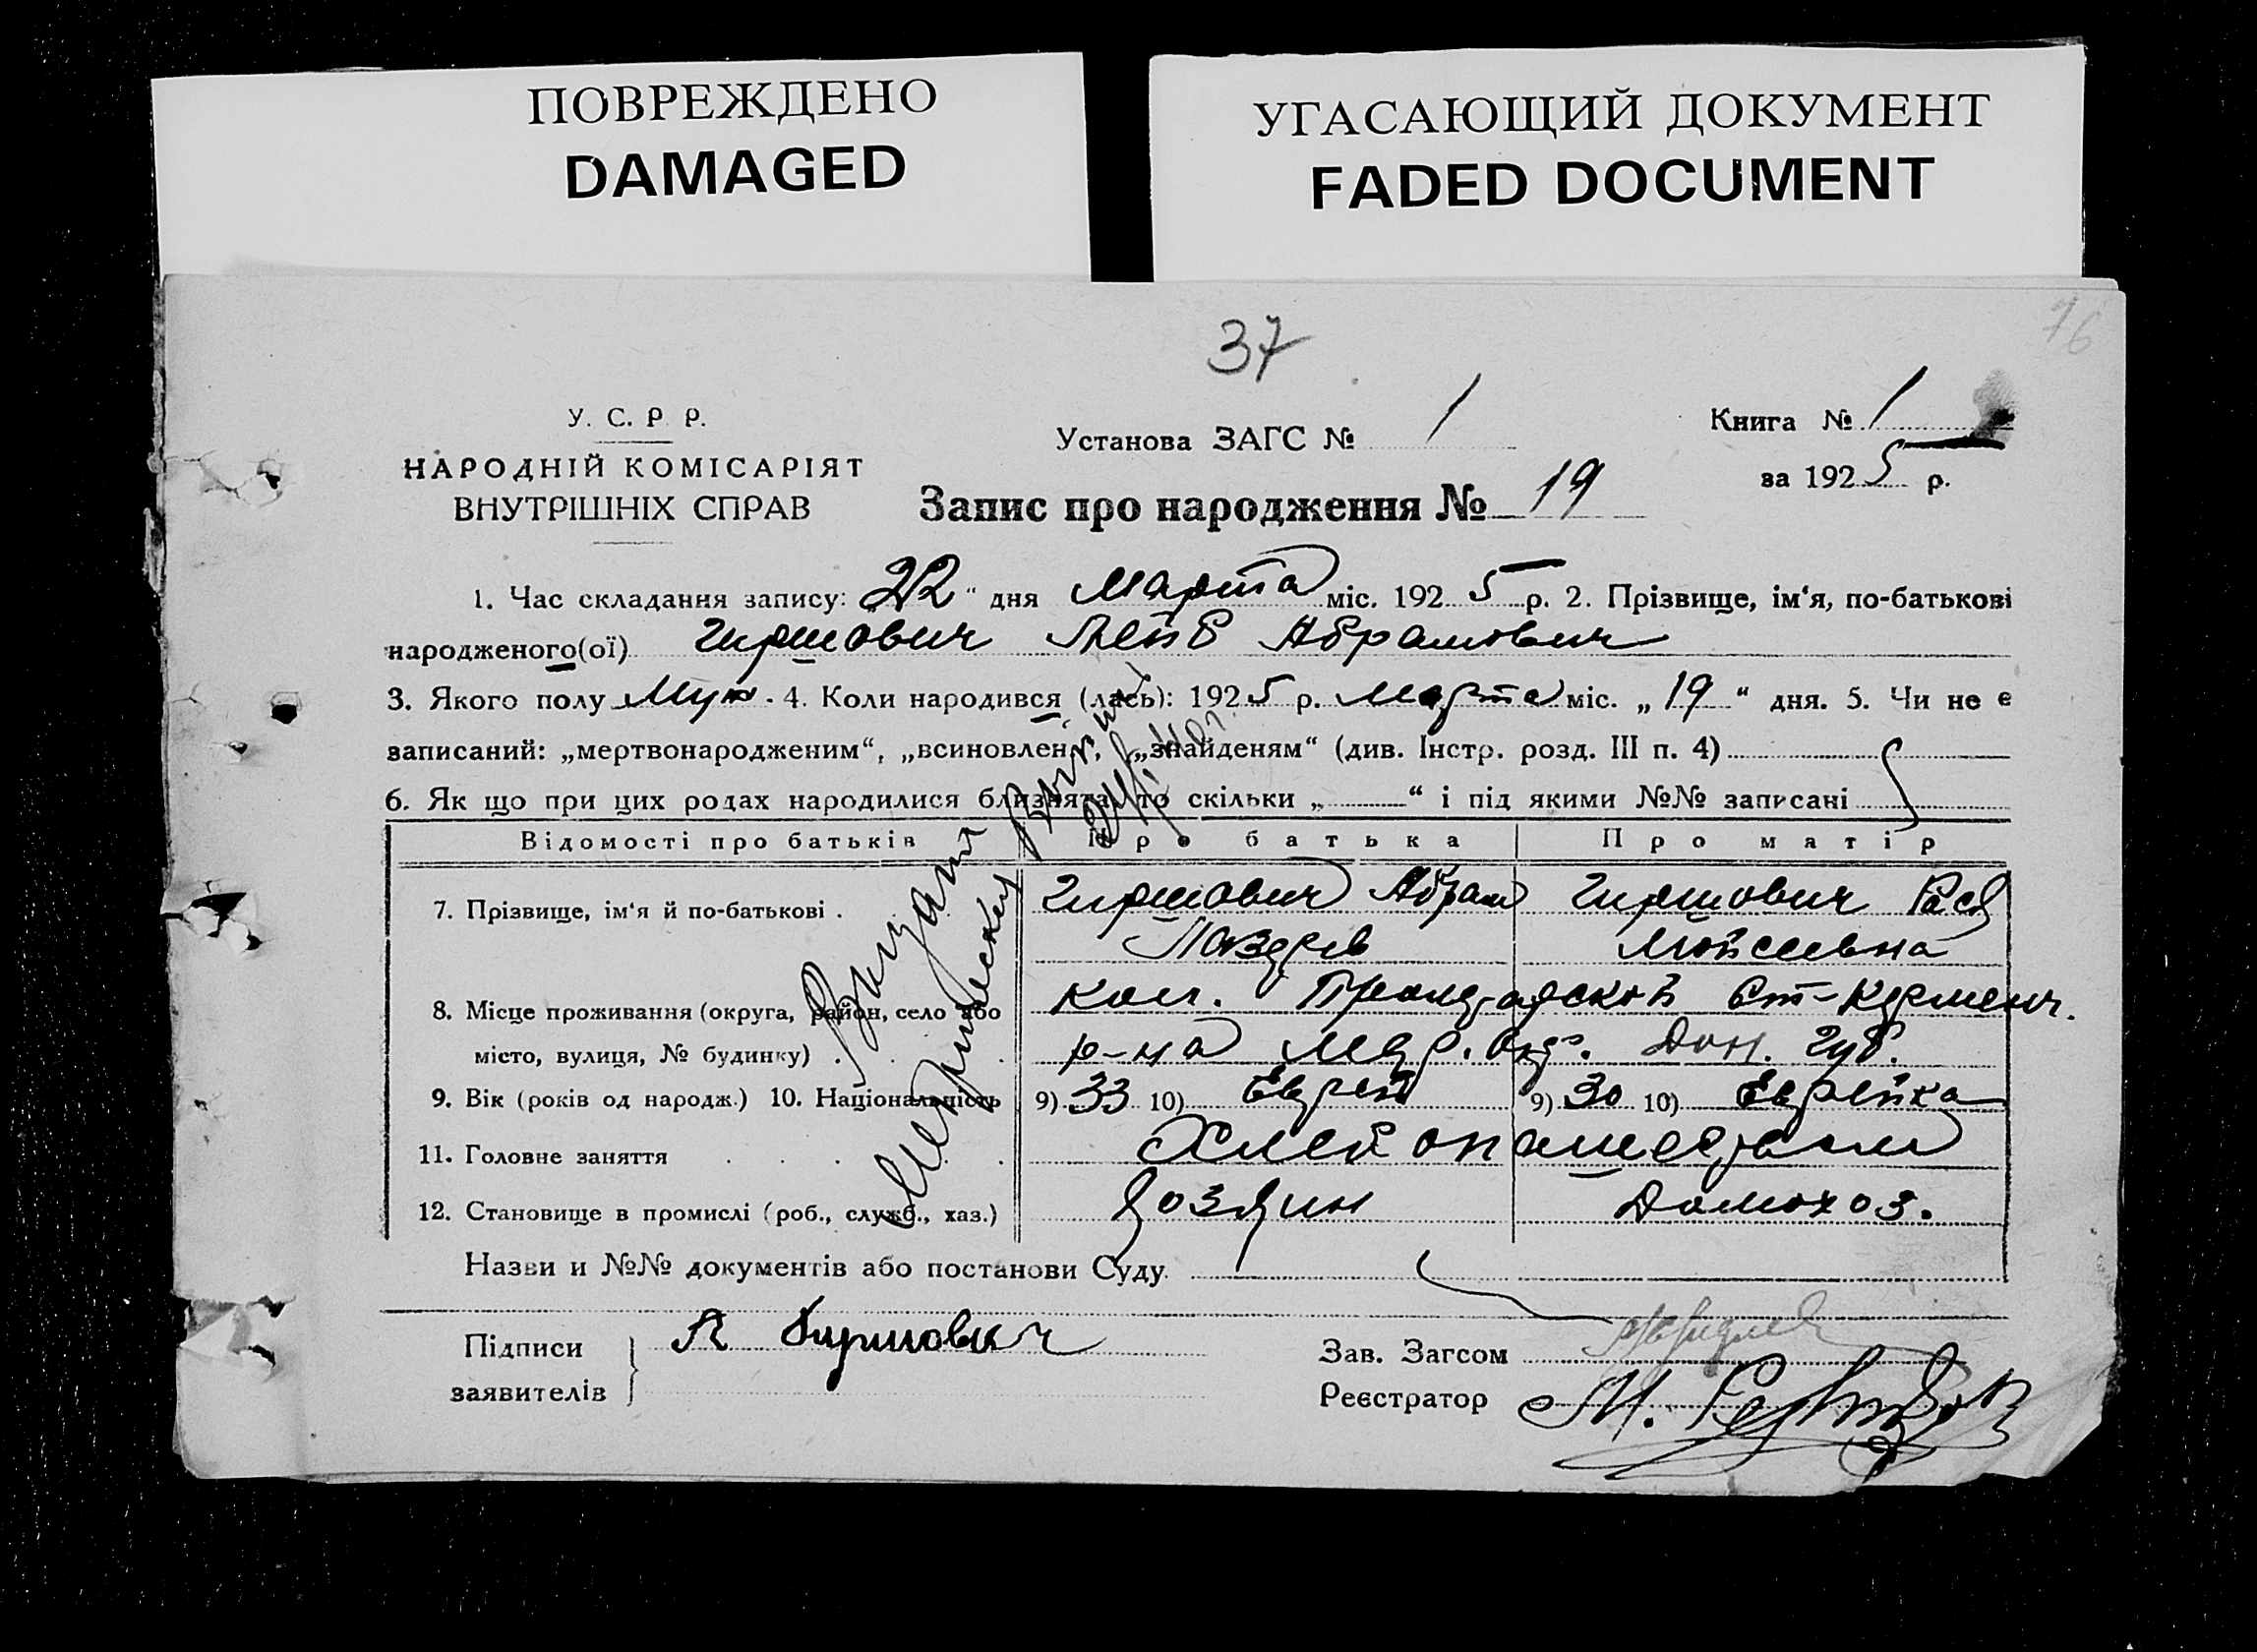 ПОВРЕЖДЕНО
DAMAGED
УГАСАЮЩИЙ ДОКУМЕНТ
FADED DOCUMENT
76
37
У. С. Р. Р.
НАРОДНІЙ КОМІСАРІЯТ
ВНУТРІШНІХ СПРАВ
Установа ЗАГС № 1
Книга № 1
за 1925 р.
Запис про народження № 19
1. Час складання запису: „22“ дня Марта міс. 1925 р. 2. Прізвище, ім‘я, по-батькові
народженого(ої) Гиршович Лейб Абрамович
3. Якого полу Муж. 4. Коли народився (лась): 1925 р. Марта міс. „19“ дня. 5. Чи не є
записаний: „мертвонародженим“, „всиновлен“, „знайденям“ (див. Інстр. розд. III п. 4)
6. Як що при цих родах народилися близнята, то скільки „ “ і під якими №№ записані
Відомості про батьків Про батька Про матір
7. Прізвище, ім‘я й по-батькові . Гиршович Абрам Гиршович Рася
Мойсеевна
8. Місце проживання (округа, район, село або кол. Ст-Керменч.
місто, вулиця, № будинку) . р-на Мар. Окр. Дон. Губ.
9. Вік (років од народж.) 10. Національність 9) 33 10) Еврей 9) 30 10) Еврейка
11. Головне заняття Хлебопашеством
12. Становище в промислі (роб., служб., хаз.) Хозяин Домохоз.
Назви и №№ документів або постанови Суду
Підписи
заявителів
А Гиршович
Зав. Загсом
Реєстратор М.